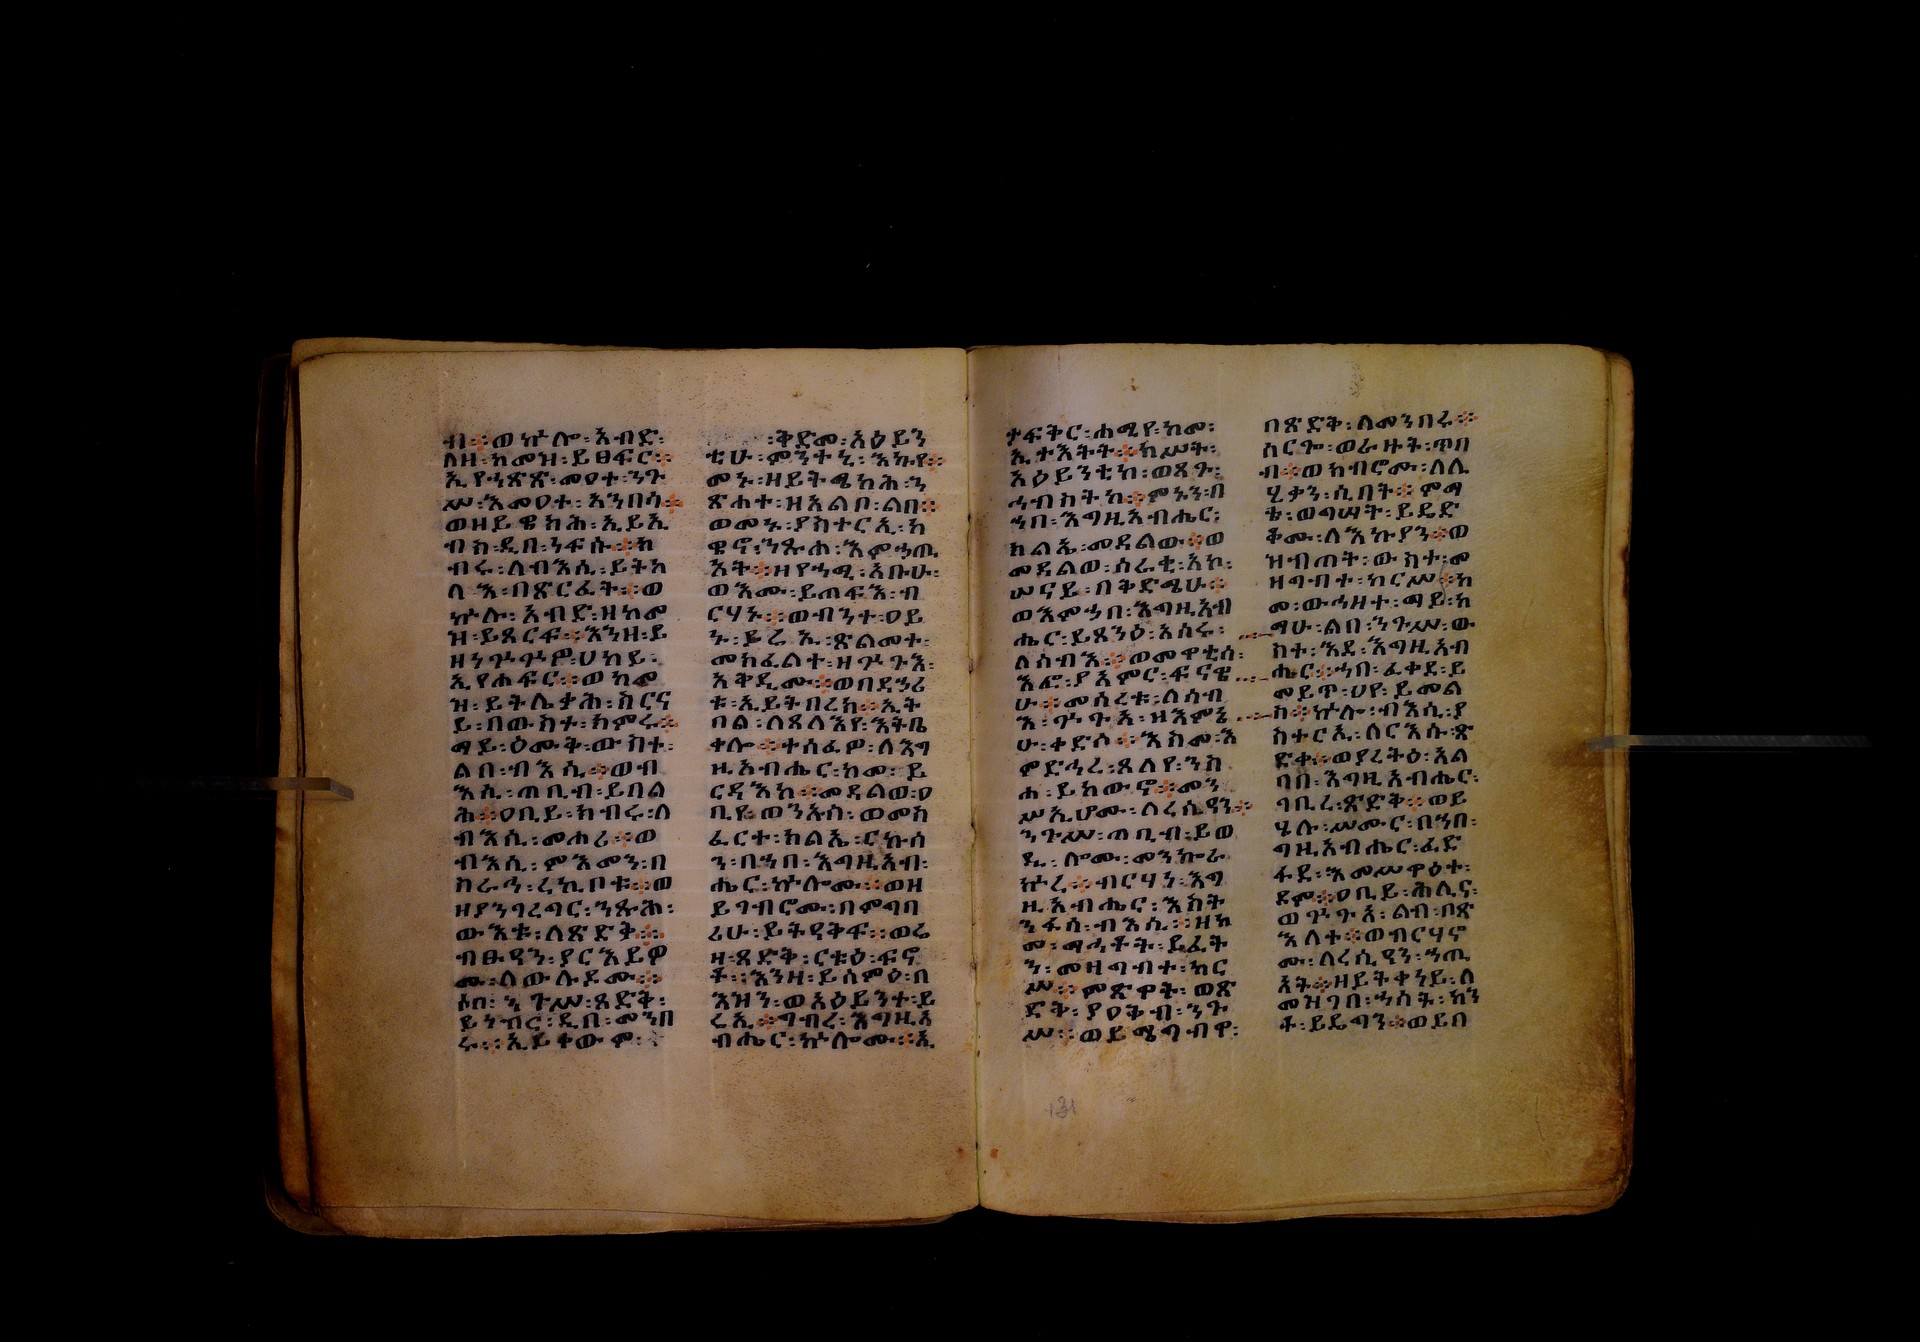 ብ፨ወኵሎ፡አብድ፡
ለዘ፡ከመዝ፡ይፀፍር፨
ኢየኀጽጽ፡መዐተ፡ንጉ
ሥ፡እመዐተ፡አንበሳ፨
ወዘይዌከሕ፡ኢይኢ
ብስ፡ዲበ፡ነፍሱ፨ክ
ብሩ፡ለብእሲ፡ይትከ
ላእ፡በጽርፈት፨ወ
ኵሉ፡አብድ፡ዘከመ
ዝ፡ይጸርፍ፨እንዘ፡ይ
ዘነጕጕዎ፡ሀካይ፡
ኢየሐፍር፨ወከመ
ዝ፡ይትሌቃሕ፡ስርና
ይ፡በውስተ፡ክምሩ፨
ማይ፡ዕሙቅ፡ውስተ፡
ልበ፡ብእሲ፨ወብ
እሲ፡ጠቢብ፡ይበል
ሕ፨ዐቢይ፡ክብሩ፡ለ
ብእሲ፡መሐሪ፨ወ
ብእሲ፡ምእመን፡በ
ከራሓ፡ረኪቦቱ፨ወ
ዘያንገረግር፡ንጹሕ፡
ውእቱ፡ለጽድቅ፨
ብፁዓን፡ያርእይዎ
ሙ፡ለውሉዶሙ፨
ሶበ፡ንጉሥ፡ጻድቅ፡
ይነብር፡ዲበ፡መንበ
ሩ፨ኢይቀውም፡
፡ቅድመ፡አዕይን
ቲሁ፡ምንተኒ፡እኩየ፨
መኑ፡ዘይትሜካሕ፡ን
ጽሐተ፡ዘአልቦ፡ልበ፨
ወመኑ፡ያስተርኢ፡ከ
ዊኖ፡ንጹሐ፡እምኃጢ
አት፨ዘየኀሚ፡አቡሁ፡
ወእሙ፡ይጠፍእ፡ብ
ርሃኑ፨ወብንተ፡ዐይ
ኑ፡ይሬኢ፡ጽልመተ፡
መክፈልተ፡ዘጕጉአ፡
አቅዲሙ፨ወበደኃሪ
ቱ፡ኢይትበረክ፨ኢት
በል፡ለጸላእየ፡እትቤ
ቀሎ፨ተሰፈዎ፡ለእግ
ዚአብሔር፡ከመ፡ይ
ርዳእከ፨መዳልወ፡ዐ
ቢዩ፡ወንኡስ፡ወመስ
ፈርተ፡ክልኤ፡ርኩሰ
ን፡በኀበ፡እግዚአብ፡
ሔር፡ኵሎሙ፨ወዘ
ይገብሮሙ፡በምግባ
ሪሁ፡ይትዳቅፍ፨ወሬ
ዛ፡ጻድቅ፡ርቱዕ፡ፍኖ
ቱ፨እንዘ፡ይሰምዕ፡በ
እዝን፡ወአዕይንተ፡ይ
ሬኢ፨ግብረ፡እግዚአ
ብሔር፡ኵሎሙ፨ኢ
ታፍቅር፡ሐሜየ፡ከመ፡
ኢተአትት፨ክሥት፡
አዕይንቲከ፡ወጸጉ፡
ሓብስትከ፨ምኑን፡በ
ኀበ፡እግዚአብሔር፡
ክልኤ፡መዳልው፨ወ
መዳልወ፡ሰራቂ፡አኮ፡
ሠናይ፡በቅድሜሁ፨
ወእምኃበ፡እግዚአብ
ሔር፡ይጸንዕ፡አሰሩ፡
ለሰብእ፨ወመዋቲሰ፡
እፎ፡ያአምር፡ፍናዊ
ሁ፨መሰረቱ፡ለሰብ
እ፡ጕጉአ፡ዘእምኔ
ሁ፡ቀድሶ፨እስመ፡እ
ምድኅረ፡ጸለየ፡ንስ
ሐ፡ይከውኖ፨መን
ሥኢሆሙ፡ለረሲዓን፨
ንጉሥ፡ጠቢብ፡ይወ
ዲ፡ሎሙ፡መንኰራ
ኵረ፨ብርሃን፡እግ
ዚአብሔር፡እስት
ንፋሰ፡ብእሲ፨ዘከ
መ፡ማኅቶት፡ይፈት
ን፡መዛግብተ፡ከር
ሥ፨ምጽዋት፡ወጽ
ድቅ፡ያዐቅብ፡ንጉ
ሥ፨ወይሜግብዋ፡
በጽድቅ፡ለመንበሩ፨
ስርጐ፡ወራዙት፡ጥበ
ብ፨ወክብሮሙ፡ለሊ
ሂቃን፡ሲበት፨ምማ
ቴ፡ወግሠት፡ይዴድ
ቆሙ፡ለእኩያን፨ወ
ዝብጠት፡ውስተ፡መ
ዛግብተ፡ከርሥ፨ከ
መ፡ውኅዘተ፡ማይ፡ከ
ማሁ፡ልበ፡ንጉሥ፡ው
ስተ፡እደ፡እግዚአብ
ሔር፨ኀበ፡ፈቀደ፡ይ
መይጥ፡ህየ፡ይመል
ክ፨ኵሉ፡ብእሲ፡ያ
ስተርኢ፡ለርእሱ፡ጽ
ድቀ፨ወያረትዕ፡አል
ባበ፡እግዚአብሔር፡
ገቢረ፡ጽድቅ፨ወይ
ሄሉ፡ሥሙር፡በኀበ፡
ግዚአብሔር፡ፈድ
ፋደ፡እመሠዋዕተ፡
ደም፨ዐቢይ፡ሕሊና፡
ወጕጉአ፡ልብ፡በጽ
እለተ፨ወብርሃኖ
ሙ፡ለረሲዓን፡ኀጢ
አት፨ዘይትቀነይ፡ለ
መዝገበ፡ኀሰት፡ከን
ቶ፡ይዴግን፨ወይበ
131